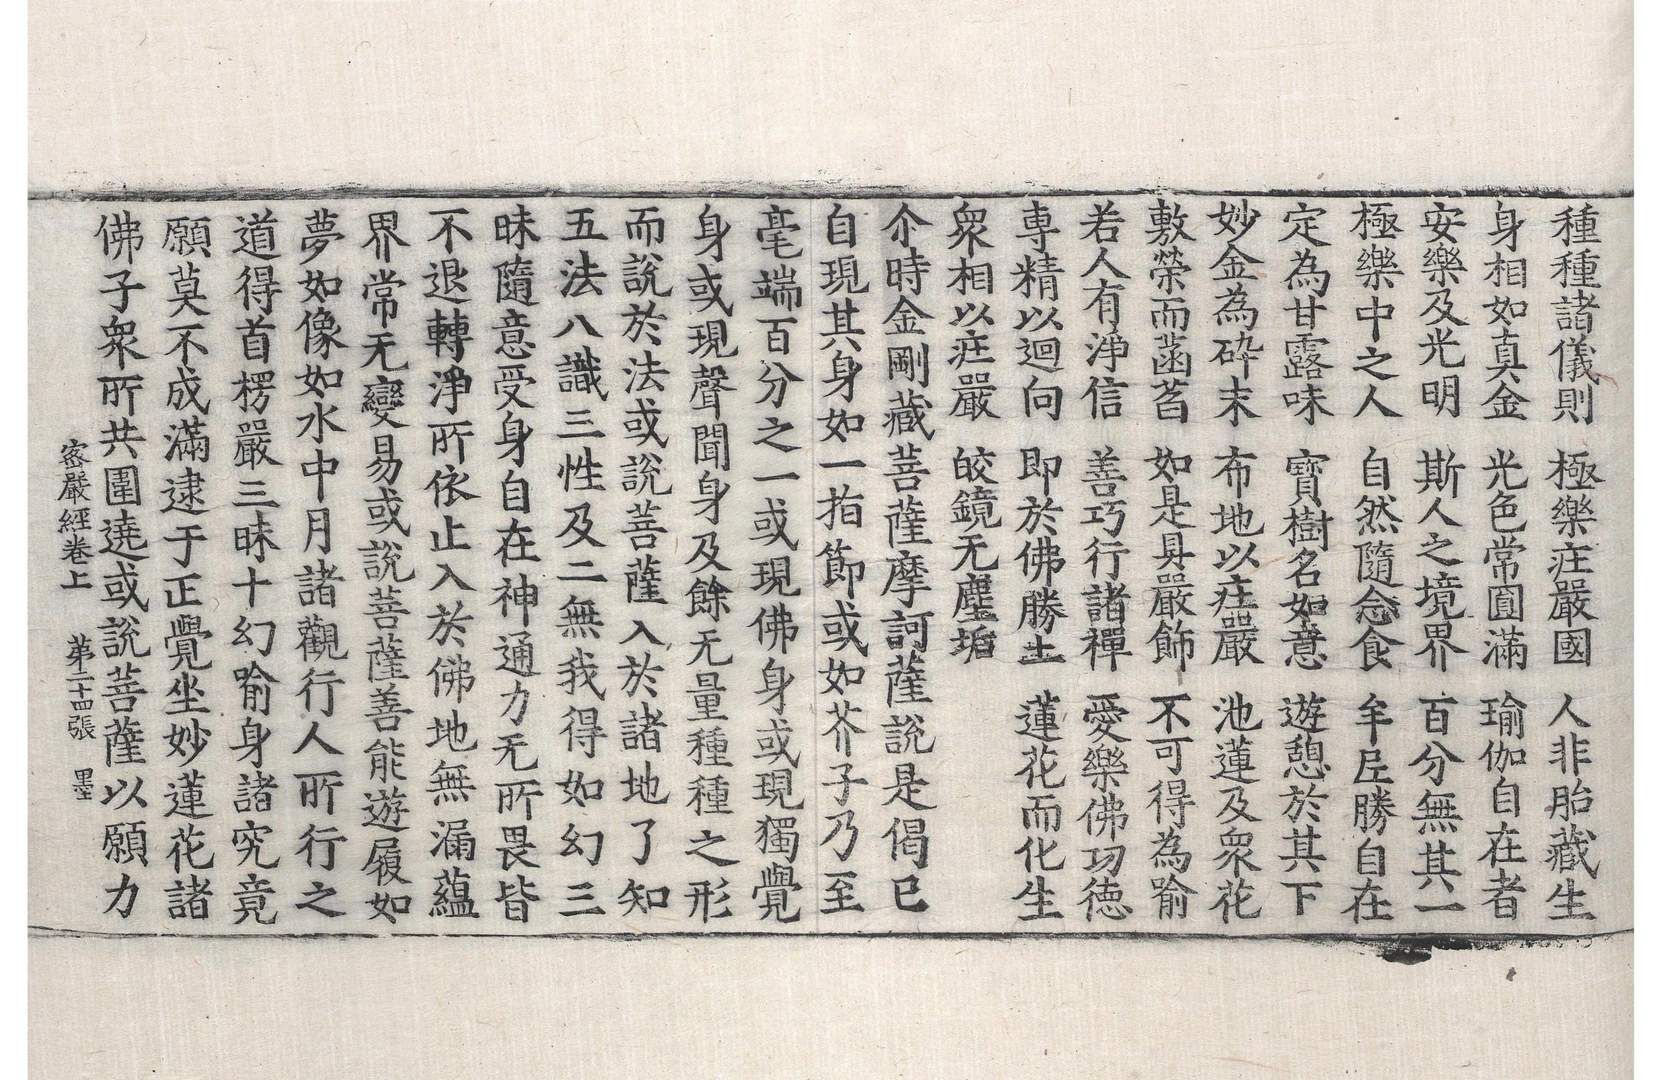 種種諸儀則　極樂庄嚴國　人非胎藏生
身相如真金　光色常圓滿　瑜伽自在者
安樂及光明　斯人之境界　百分無其一
極樂中之人　自然隨念食　牟尼勝自在
定為甘露味　寶樹名如意　遊憩於其下
妙金為碎末　布地以庄嚴　池蓮及眾花
敷榮而菡萏　如是具嚴飾　不可得為喻
若人有淨信　善巧行諸禪　愛樂佛功德
專精以迴向　即於佛勝土　蓮花而化生
眾相以庄嚴　皎鏡无塵垢
尒時金剛藏菩薩摩訶薩說是偈已
自現其身如一指節或如芥子乃至
毫端百分之一或現佛身或現獨覺
身或現聲聞身及餘无量種種之形
而說於法或說菩薩入於諸地了知
五法八識三性及二無我得如幻三
昧隨意受身自在神通力无所畏皆
不退轉淨所依止入於佛地無漏蘊
界常无變易或說菩薩善能遊履如
夢如像如水中月諸觀行人所行之
道得首楞嚴三昧十幻喻身諸究竟
願莫不成滿逮于正覺坐妙蓮花諸
佛子眾所共圍遶或說菩薩以願力
密嚴經卷上　第二十四張　墨